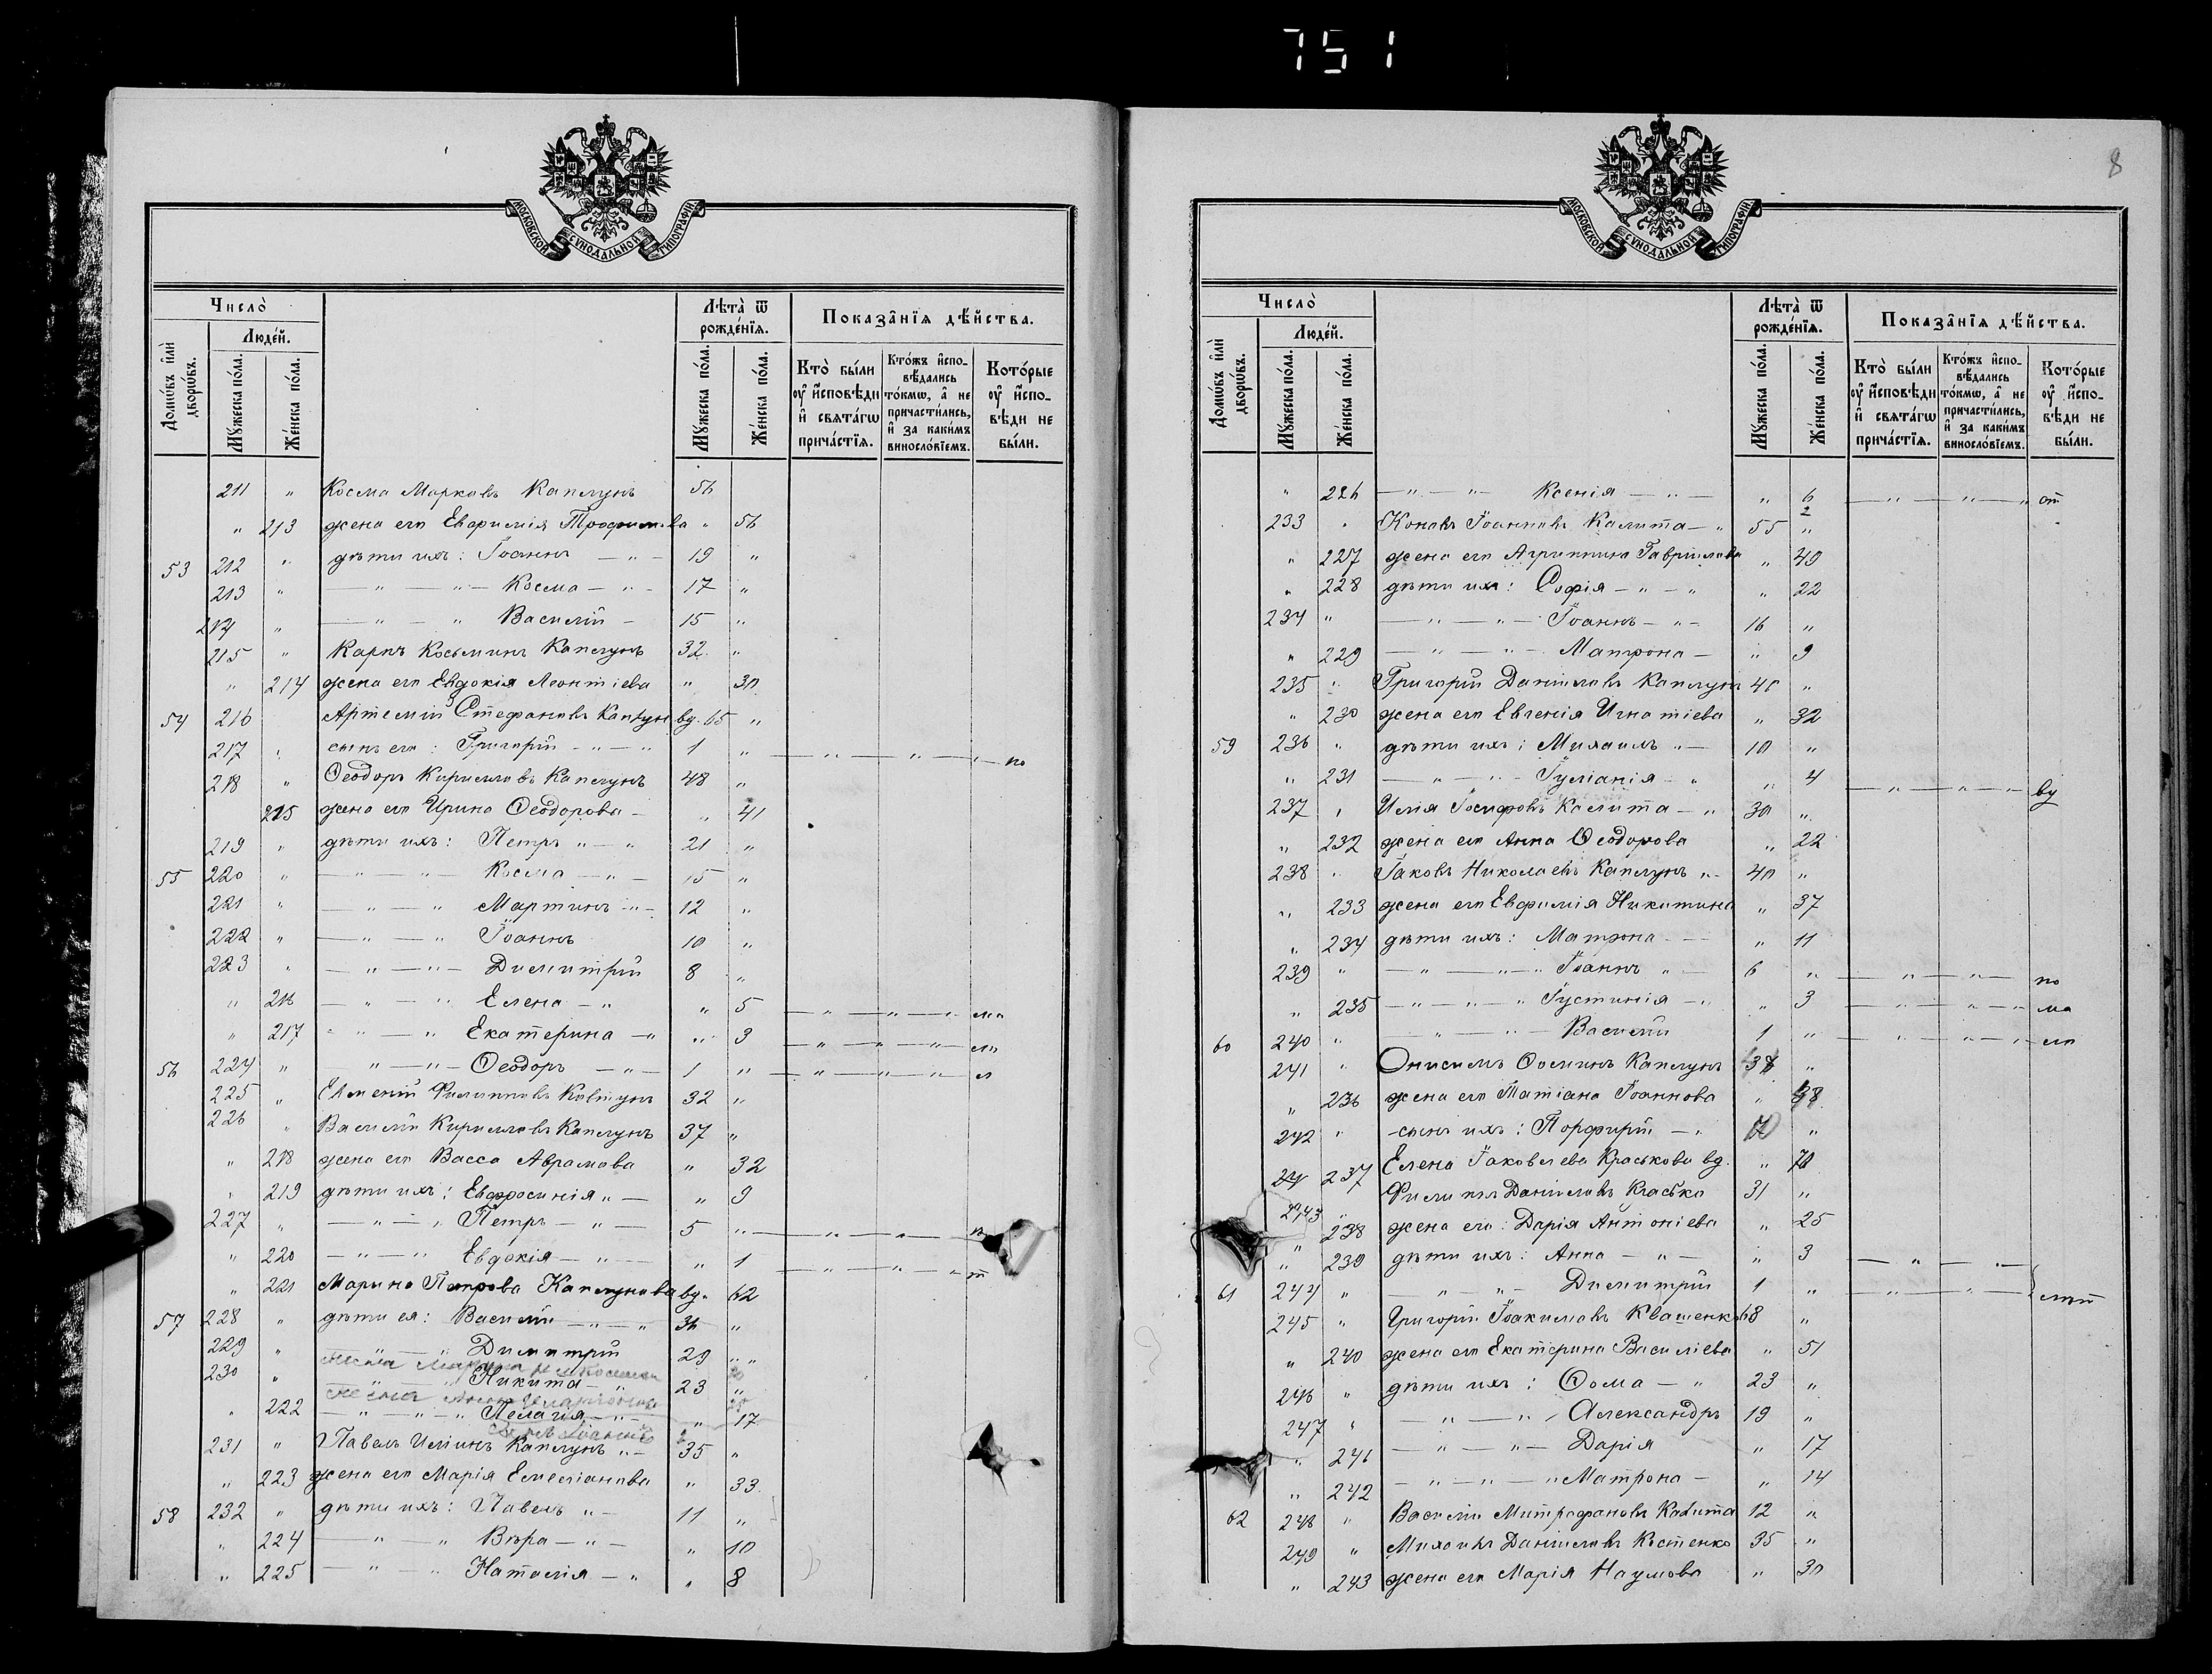 751
МОСКОВСКОЙ СУНОДАЛЬНОЙ ТИПОГРАФІИ
Число̀
Домѡвъ и҆лѝ дворѡ́въ.
Люде́й.
Мꙋжеска по́ла.
Же́нска по́ла.
Лѣта̀ ѿ рожде́нїѧ.
Мꙋжеска по́ла.
Же́нска по́ла.
Показа̑нїѧ дѣ́йства.
Кто̀ бы́ли оу҆ и҆́сповѣди и҆ свѧта́гѡ прича́стїѧ.
Кто́жъ и҆спо-вѣ́дались то́кмѡ, а҆ не причасти́лись, и҆ за каки́мъ винослѡ́вїемъ.
Кото́рые оу҆ и҆́спо-вѣди не бы́ли.
211 " Косма Марковъ Каплунъ 56
" 213 жена его Евфимія Трофимова " 56
53 212 " дѣти ихъ: Іоаннъ — " — 19 "
213 " — " — " — Косма — " — 17 "
214 " — " — " Василій — 15 "
215 " Карпъ Косьминъ Каплунъ 32 "
" 214 жена его Евдокія Леонтіева " 30
54 216 Артемій Стефановъ Каплун вд. 65 "
217 " сынъ его: Григорій — " — " 1 " — " — " — " — по
218 " Ѳеодоръ Кирилловъ Каплунъ 48 "
215 жена его Ирина Ѳеодорова — " 41
219 " дѣти ихъ: Петръ " — " 21 "
55 220 " — " — " — Косма — " — 15 "
221 " — " — " Мартинъ — " — 12 "
222 " — " — " Іоаннъ 10 "
223 " — " — " — Димитрій 8 "
" 216 — " — " Елена — " " 5 — " — " — " ма
" 217 " — " Екатерина — " " 3 — " — " — " ло
56 224 " — " — " — Ѳеодоръ — " — 1 " — " — " — " л
225 " Евмений Филипповъ Ковтунъ 32 "
226 " Василій Кирилловъ Каплунъ 37 "
" 218 жена его Васса Аврамова " 32
" 219 дѣти ихъ: Евфросинія " — " 9
227 " — " — " Петръ — " — 5 " — " — " —
" 220 — " — " Евдокія — " — " 1 — " — " — " т
" 221 Марина Петрова Каплунова вд. 62
57 228 " дѣти ея: Василій — " — " 36 "
229 " — " Димитрій 29 "
230 " — " — " Никита — " 23 "
" 222 — " — " — " Пелагія — " — " 17
231 " Павелъ Иліинъ Каплунъ " — 35 "
" 223 жена его Марія Емеліанова " 33
58 232 " дѣти ихъ: Павелъ " — 11 "
" 224 — " — " Вѣра — " — " 10
" 225 — " — " Наталія — " " 8
8
МОСКОВСКОЙ СУНОДАЛЬНОЙ ТИПОГРАФІИ
Число̀
Домѡвъ и҆лѝ дворѡ́въ.
Люде́й.
Мꙋжеска по́ла.
Же́нска по́ла.
Лѣта̀ ѿ рожде́нїѧ.
Мꙋжеска по́ла.
Же́нска по́ла.
Показа̑нїѧ дѣ́йства.
Кто̀ бы́ли оу҆ и҆́сповѣди и҆ свѧта́гѡ прича́стїѧ.
Кто́жъ и҆спо-вѣ́дались то́кмѡ, а҆ не причасти́лись, и҆ за каки́мъ винослѡ́вїемъ.
Кото́рые оу҆ и҆́спо-вѣди не бы́ли.
" 226 — " — " — Ксенія — " — " 6 — " — " — " от
233 " Кононъ Іоанновъ Калита — " 55 "
" 227 жена его Агриппина Гаврилова " 40
" 228 дѣти ихъ: Софія — " — " " 22
234 " — " — " — Іоаннъ — " — 16 "
" 229 — " — " — Матрона — " 9
235 " Григорій Даніиловъ Каплун 40 "
" 230 жена его Евгенія Игнатіева " 32
59 236 " дѣти ихъ: Михаилъ " — 10 "
" 231 — " — " — Іуліанія — " " 4 — " — " — " ву
237 " Илія Іосифовъ Калита — " 30 "
" 232 жена его Анна Ѳеодорова " 22
238 " Іаковъ Николаевъ Каплунъ " — 40 "
" 233 жена его Евфимія Никитина " 37
" 234 дѣти ихъ: Матрона — — " 11
239 " — " — " — " Іоаннъ " — 6 " — " — " — по
" 235 — " — " — " Іустинія — " " 3 — " — " — " ма
60 240 " — " — " — Василій 1 " — " — " — " ло
241 " Онисимъ Ѳоминъ Каплунъ 38 "
" 236 жена его Татіана Іоаннова " 38
242 " сынъ ихъ: Порфирій — " 10 "
237 Елена Іаковлева Краськова вд. " 70
243 " Филиппъ Даніиловъ Красько 31 "
" 238 жена его: Дарія Антоніева " 25
" 239 дѣти ихъ: Анна — " — " 3 — " — " —
61 244 " — " — " — Димитрій 1 " — " — " — лѣт
245 " Григорій Іоакимовъ Квашенко 68 "
" 240 жена его Екатерина Василіева " 51
246 " дѣти ихъ: Ѳома — " 23 "
247 " — " — " Александръ 19 "
" 241 — " — " — Дарія " 17
" 242 — " — " — " Матрона — " 14
62 248 " Василій Митрофановъ Калита 12 "
249 " Михаилъ Даніиловъ Костенко 35 "
" 243 жена его Марія Наумова " 30